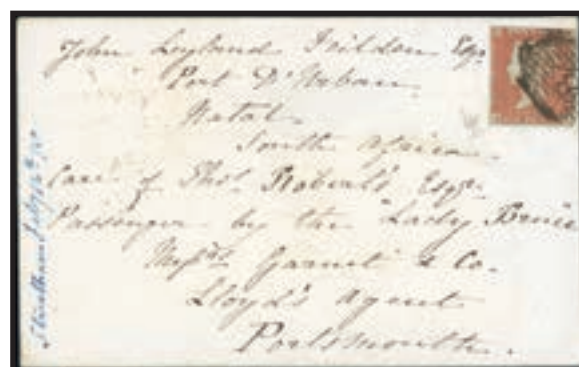 John Leyland Feilden Esqr
Port D'Urban
Natal
South Africa
Care of Thos. Roberts Esqre
Passenger by the "Lady Bruce
Messrs Garnet & Co.
Lloyd's Agent
Portsmouth.